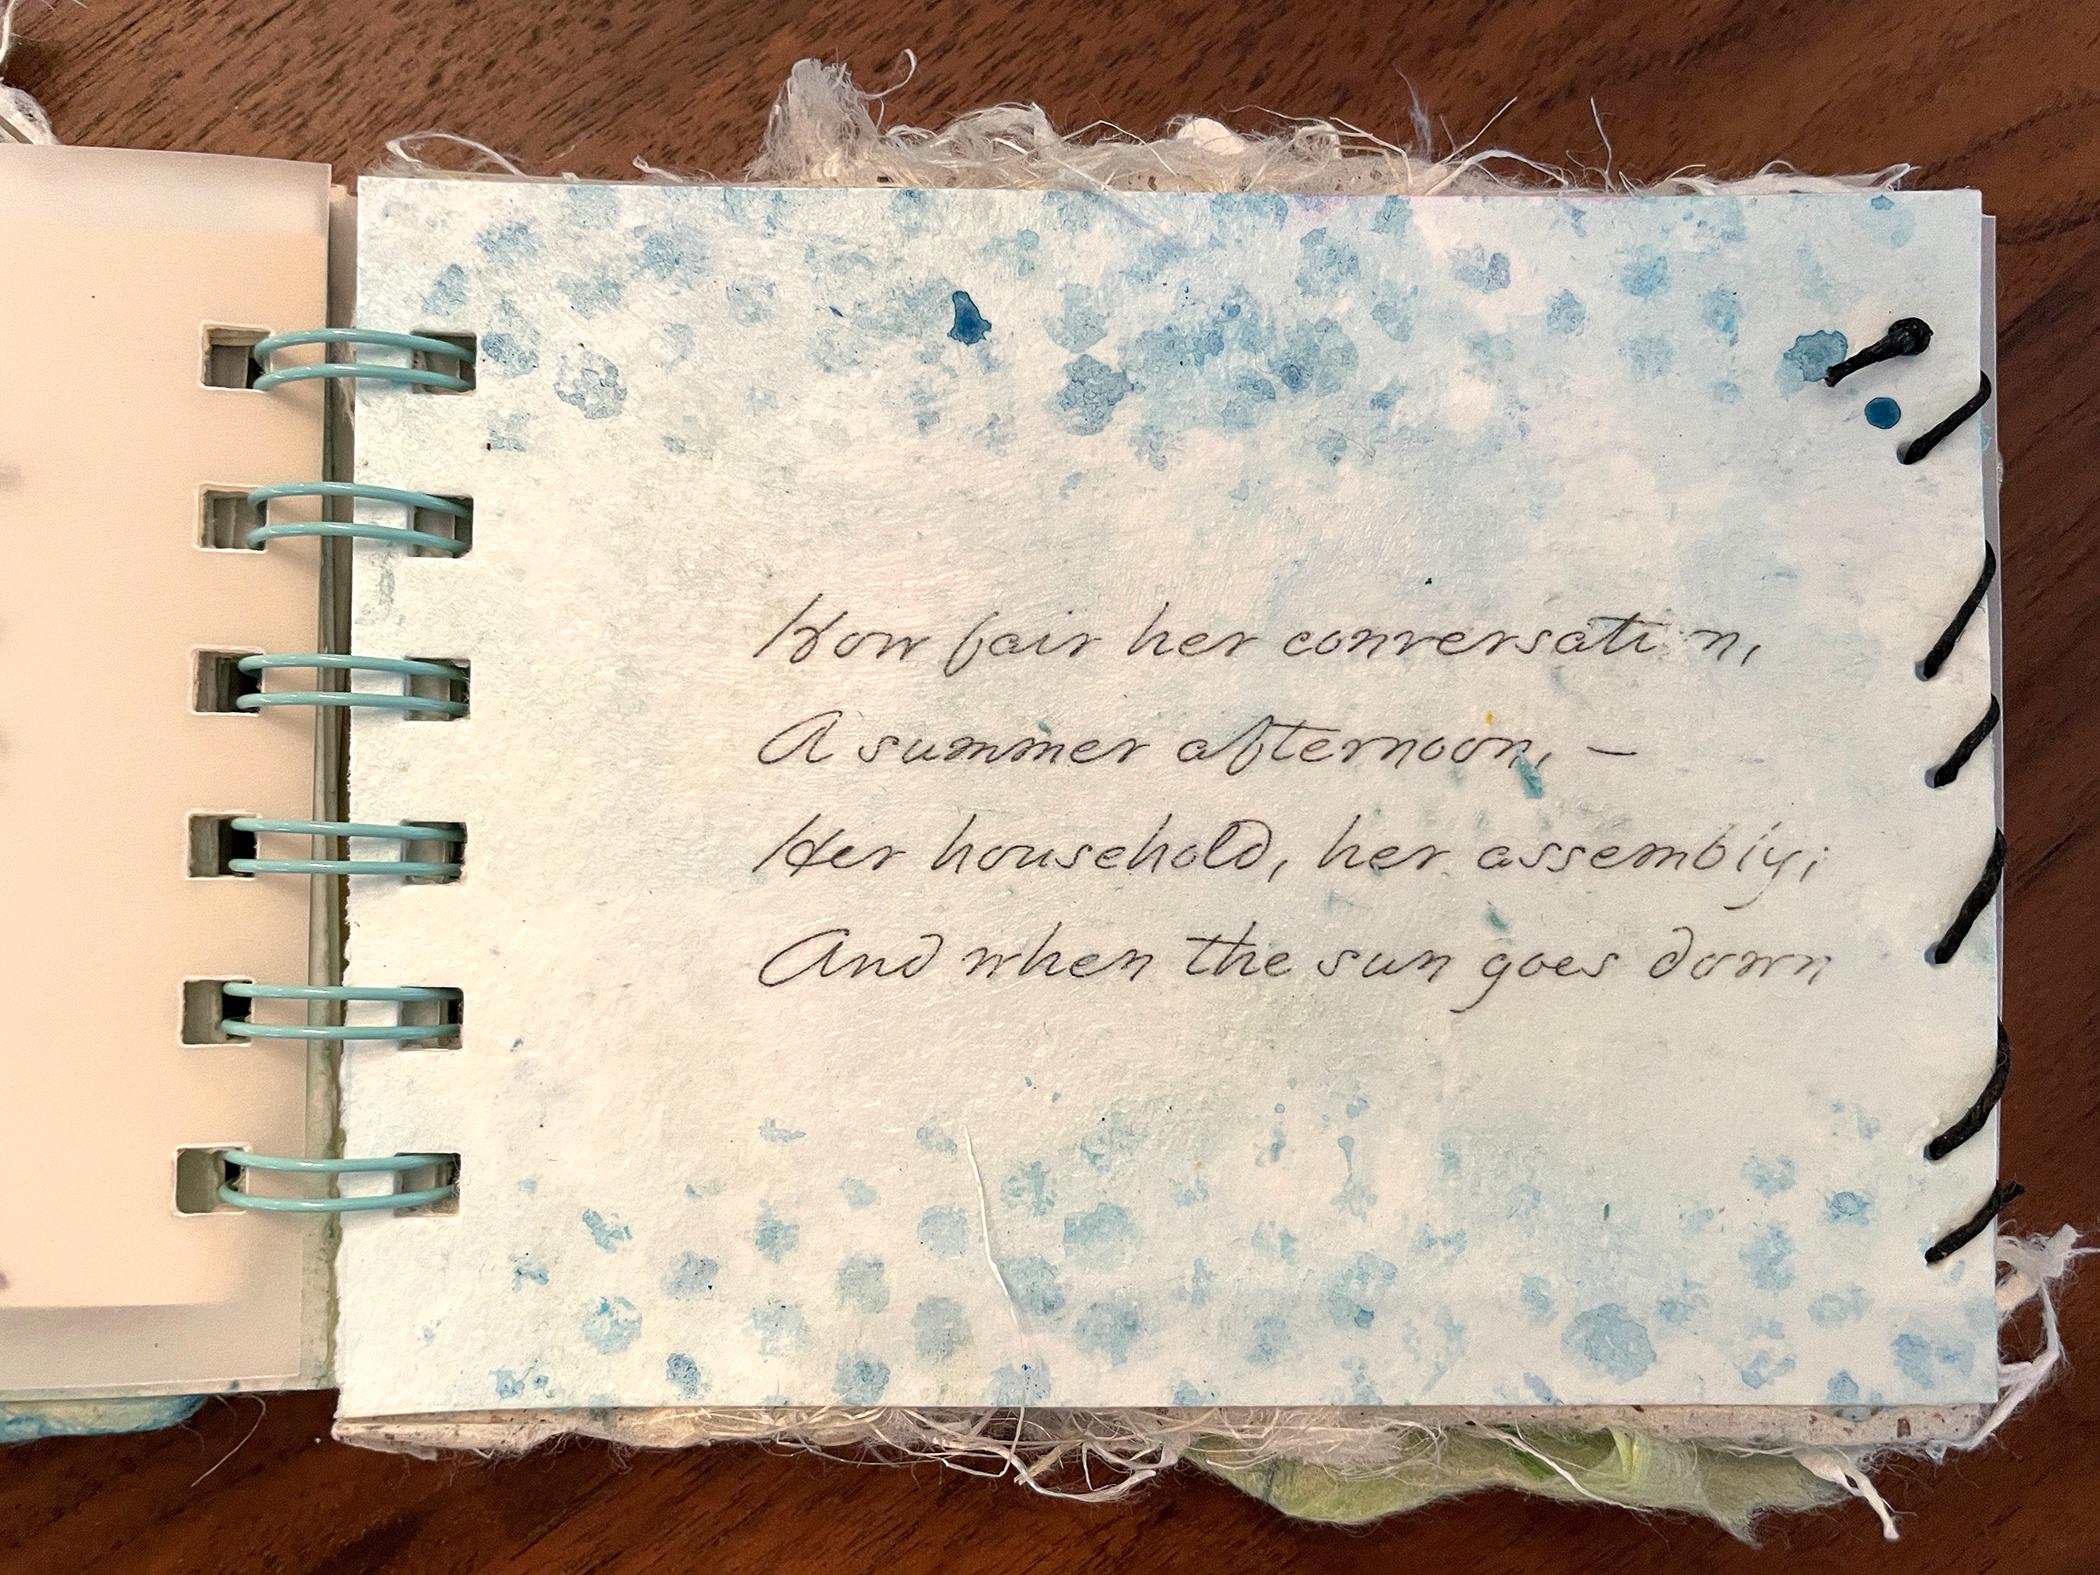 How fair her conversation,
A summer afternoon, —
Her household, her assembly;
And when the sun goes down